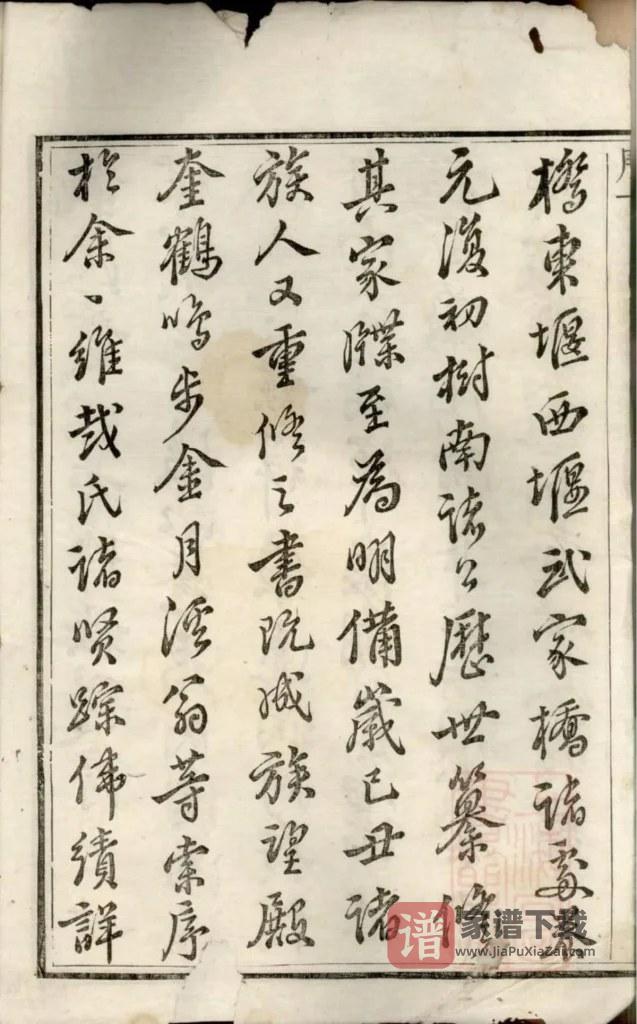 橋東堰西堰武家橋諸處各
元復初樹南諸公歷世纂修
其家牒至為明備歲己丑諸
族人又重修之書既成族望殿
奎鶴鳴步金月溪翁等索序
於余、維彧氏諸賢蹤偉績詳
家谱下载
www.JiaPuXiaZai.com
谱